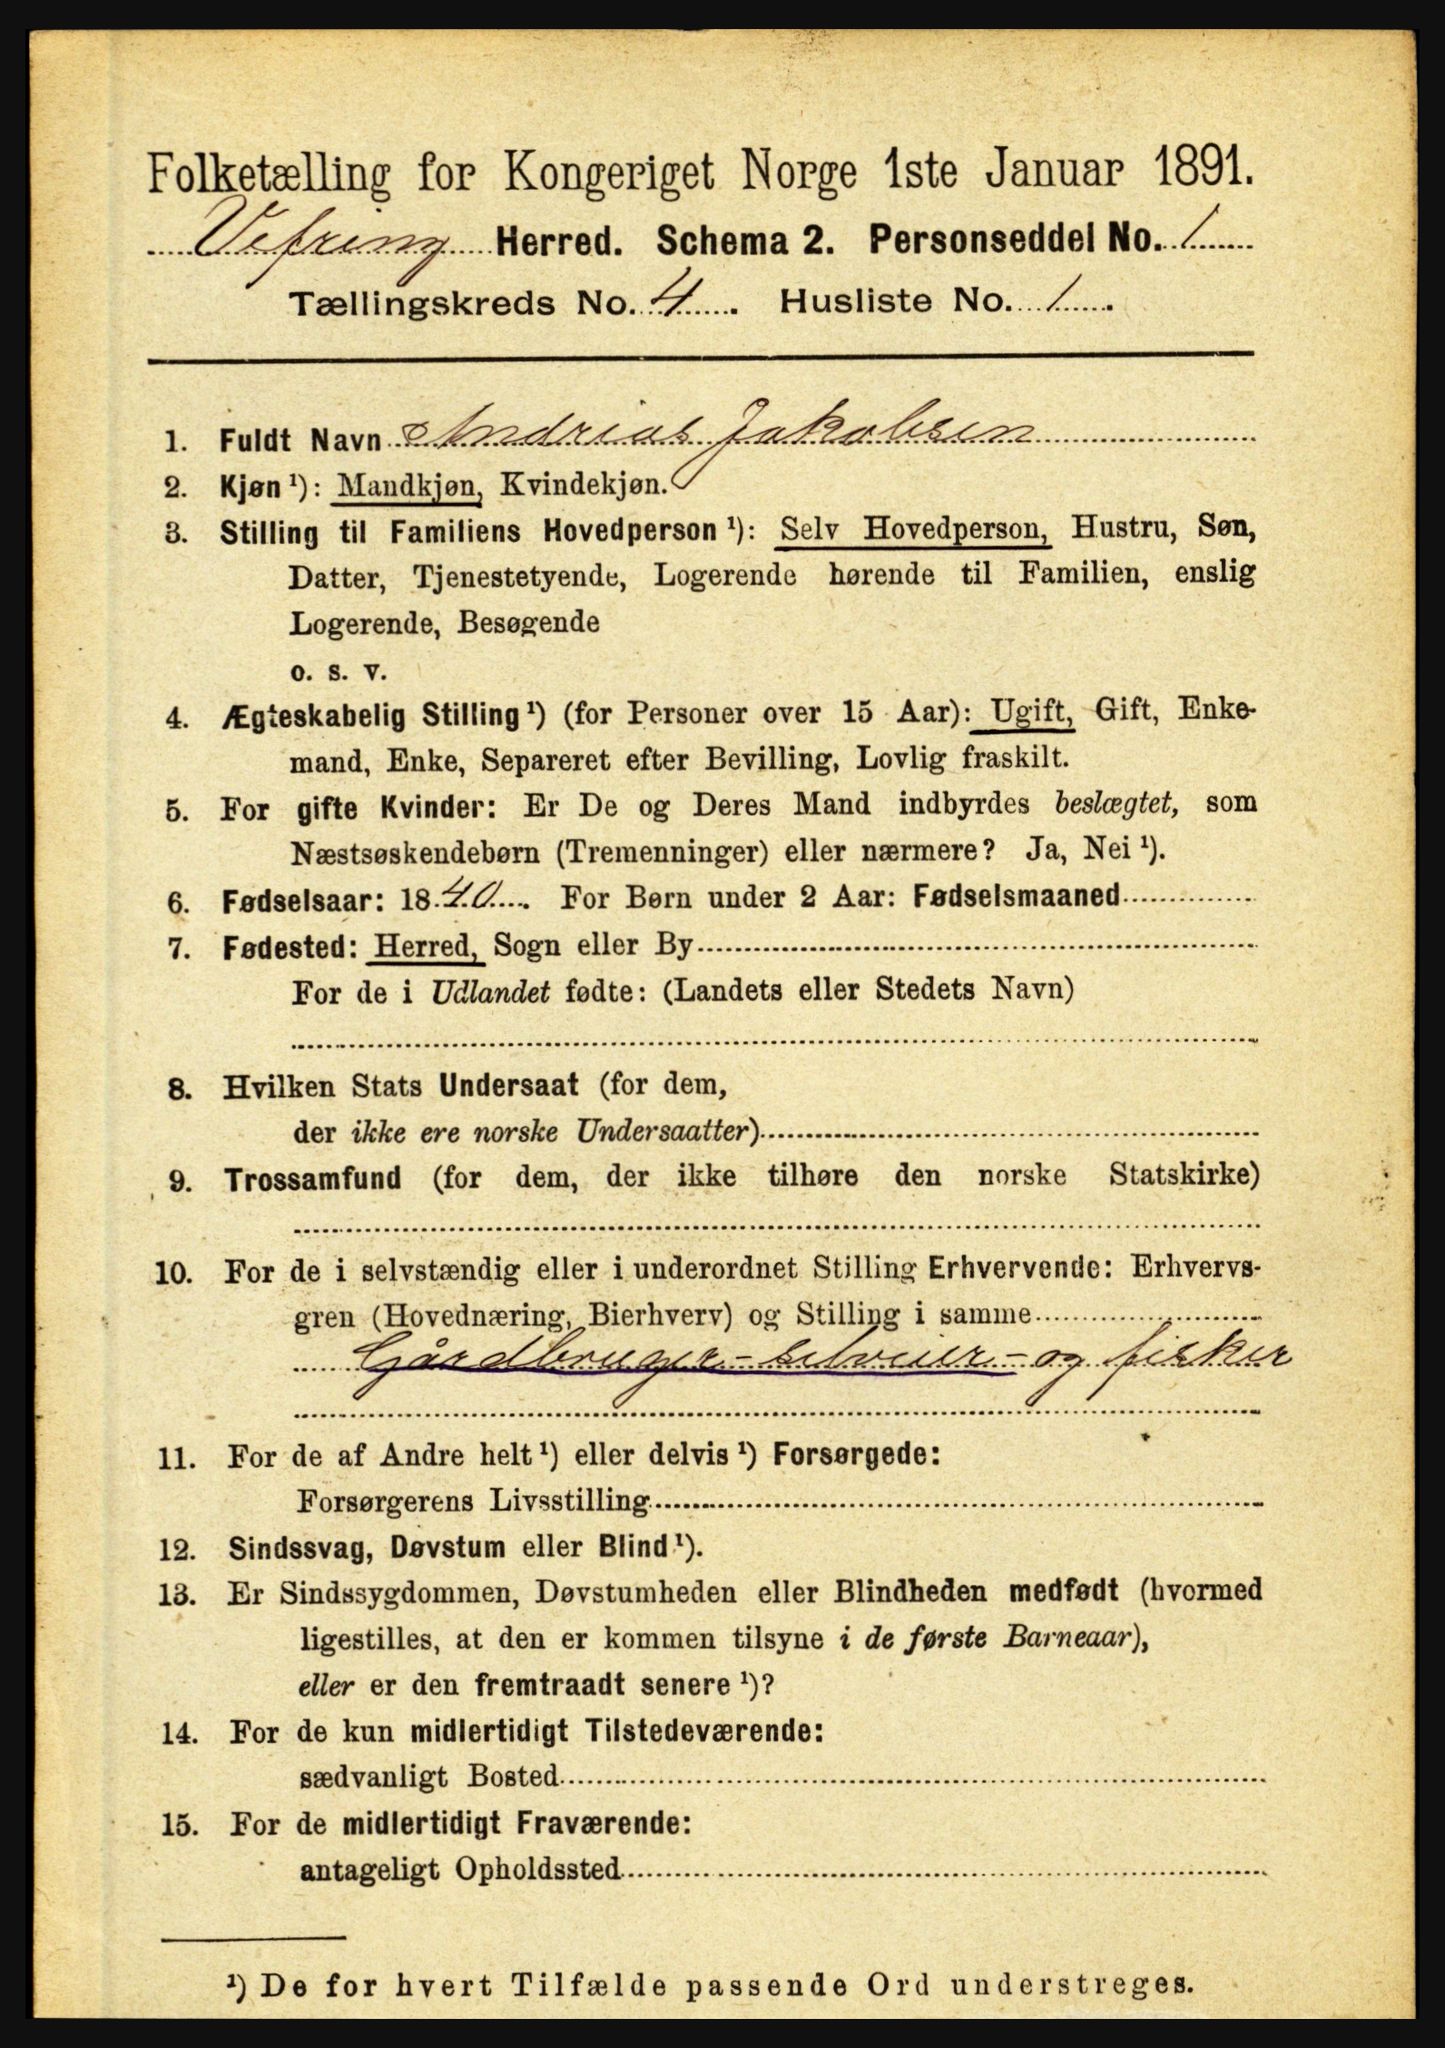 Folketælling for Kongeriget Norge 1ste Januar 1891.
Vefring Herred. Schema 2. Personseddel No. 1
Tællingskreds No. 4. Husliste No. 1.
1. Fuldt Navn Andrias Jakobsen
2. Kjøn ¹): Mandkjøn, Kvindekjøn.
3. Stilling til Familiens Hovedperson ¹): Selv Hovedperson, Hustru, Søn,
Datter, Tjenestetyende, Logerende hørende til Familien, enslig
Logerende, Besøgende
o. s. v.
4. Ægteskabelig Stilling ¹) (for Personer over 15 Aar): Ugift, Gift, Enke-
mand, Enke, Separeret efter Bevilling, Lovlig fraskilt.
5. For gifte Kvinder: Er De og Deres Mand indbyrdes beslægtet, som
Næstsøskendebørn (Tremenninger) eller nærmere? Ja, Nei ¹).
6. Fødselsaar: 1840. For Børn under 2 Aar: Fødselsmaaned
7. Fødested: Herred, Sogn eller By
For de i Udlandet fødte: (Landets eller Stedets Navn)
8. Hvilken Stats Undersaat (for dem,
der ikke ere norske Undersaatter)
9. Trossamfund (for dem, der ikke tilhøre den norske Statskirke)
10. For de i selvstændig eller i underordnet Stilling Erhvervende: Erhvervs-
gren (Hovednæring, Bierhverv) og Stilling i samme
Gårdbruger - selveier - og fisker
11. For de af Andre helt ¹) eller delvis ¹) Forsørgede:
Forsørgerens Livsstilling
12. Sindssvag, Døvstum eller Blind ¹).
13. Er Sindssygdommen, Døvstumheden eller Blindheden medfødt (hvormed
ligestilles, at den er kommen tilsyne i de første Barneaar),
eller er den fremtraadt senere ¹)?
14. For de kun midlertidigt Tilstedeværende:
sædvanligt Bosted
15. For de midlertidigt Fraværende:
antageligt Opholdssted
¹) De for hvert Tilfælde passende Ord understreges.